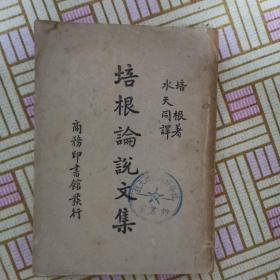 培根著
水天同譯
培根論說文集
商務印書館發行